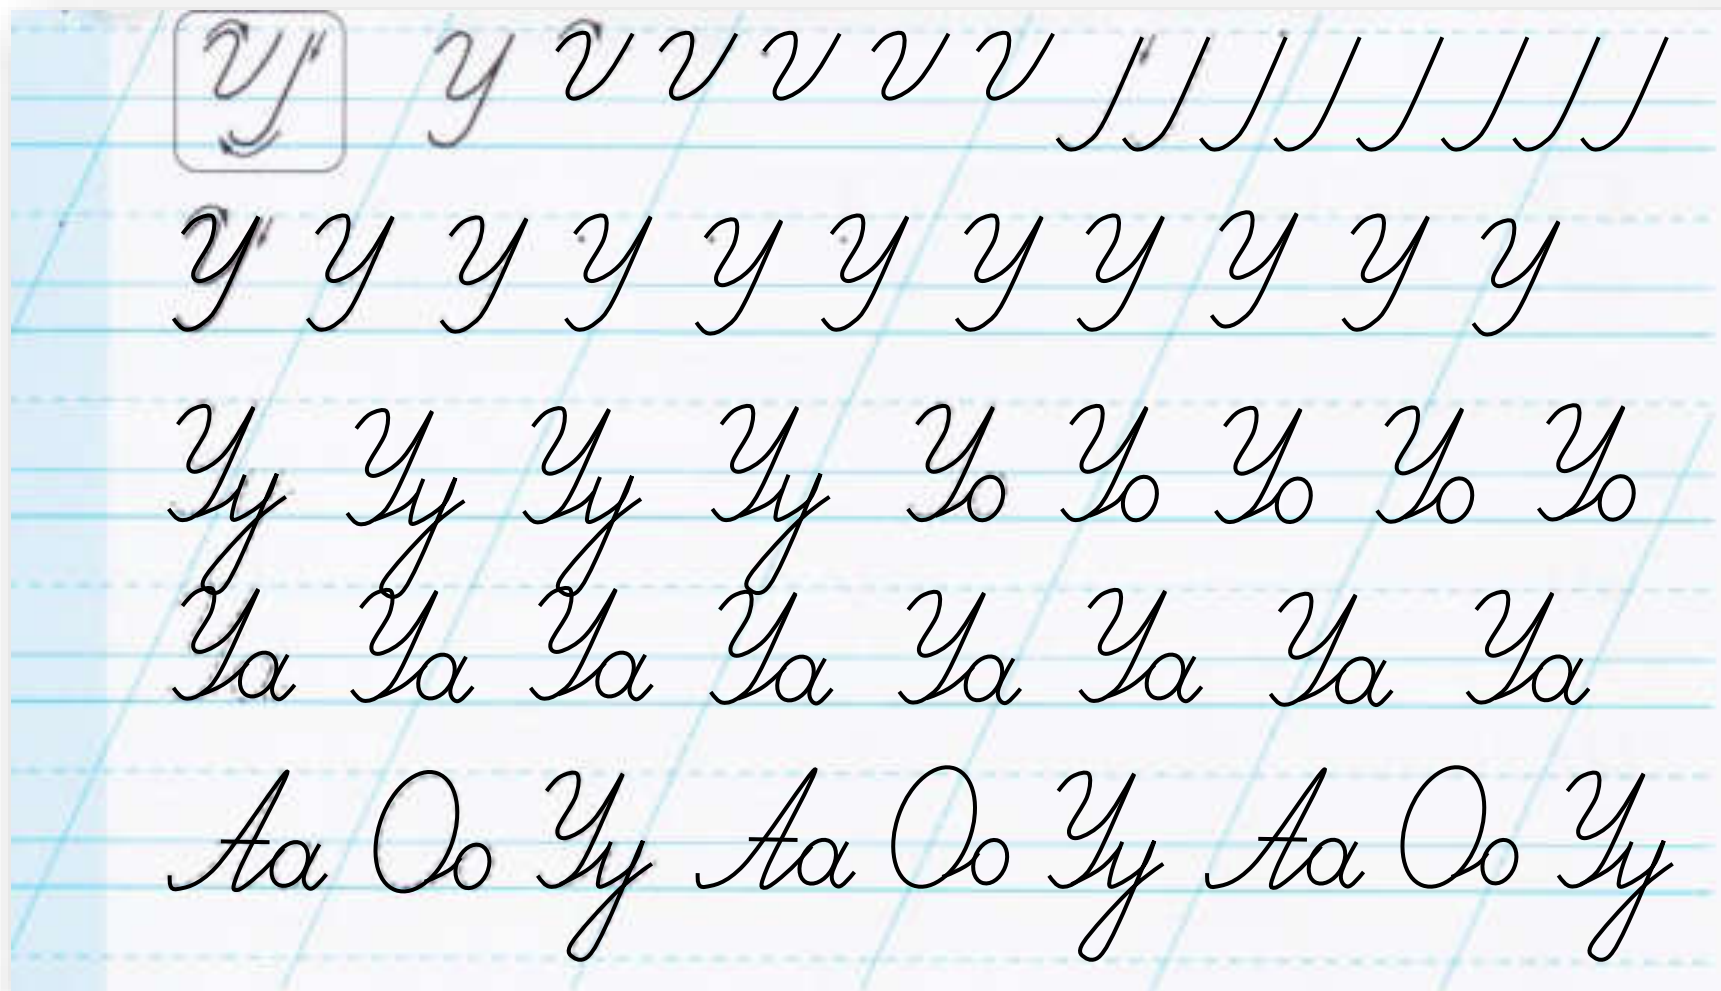 У У
У У У У У У У У У У У
Уу Уу Уу Уу Уо Уо Уо Уо Уо
Уа Уа Уа Уа Уа Уа Уа Уа
Аа Оо Уу Аа Оо Уу Аа Оо Уу